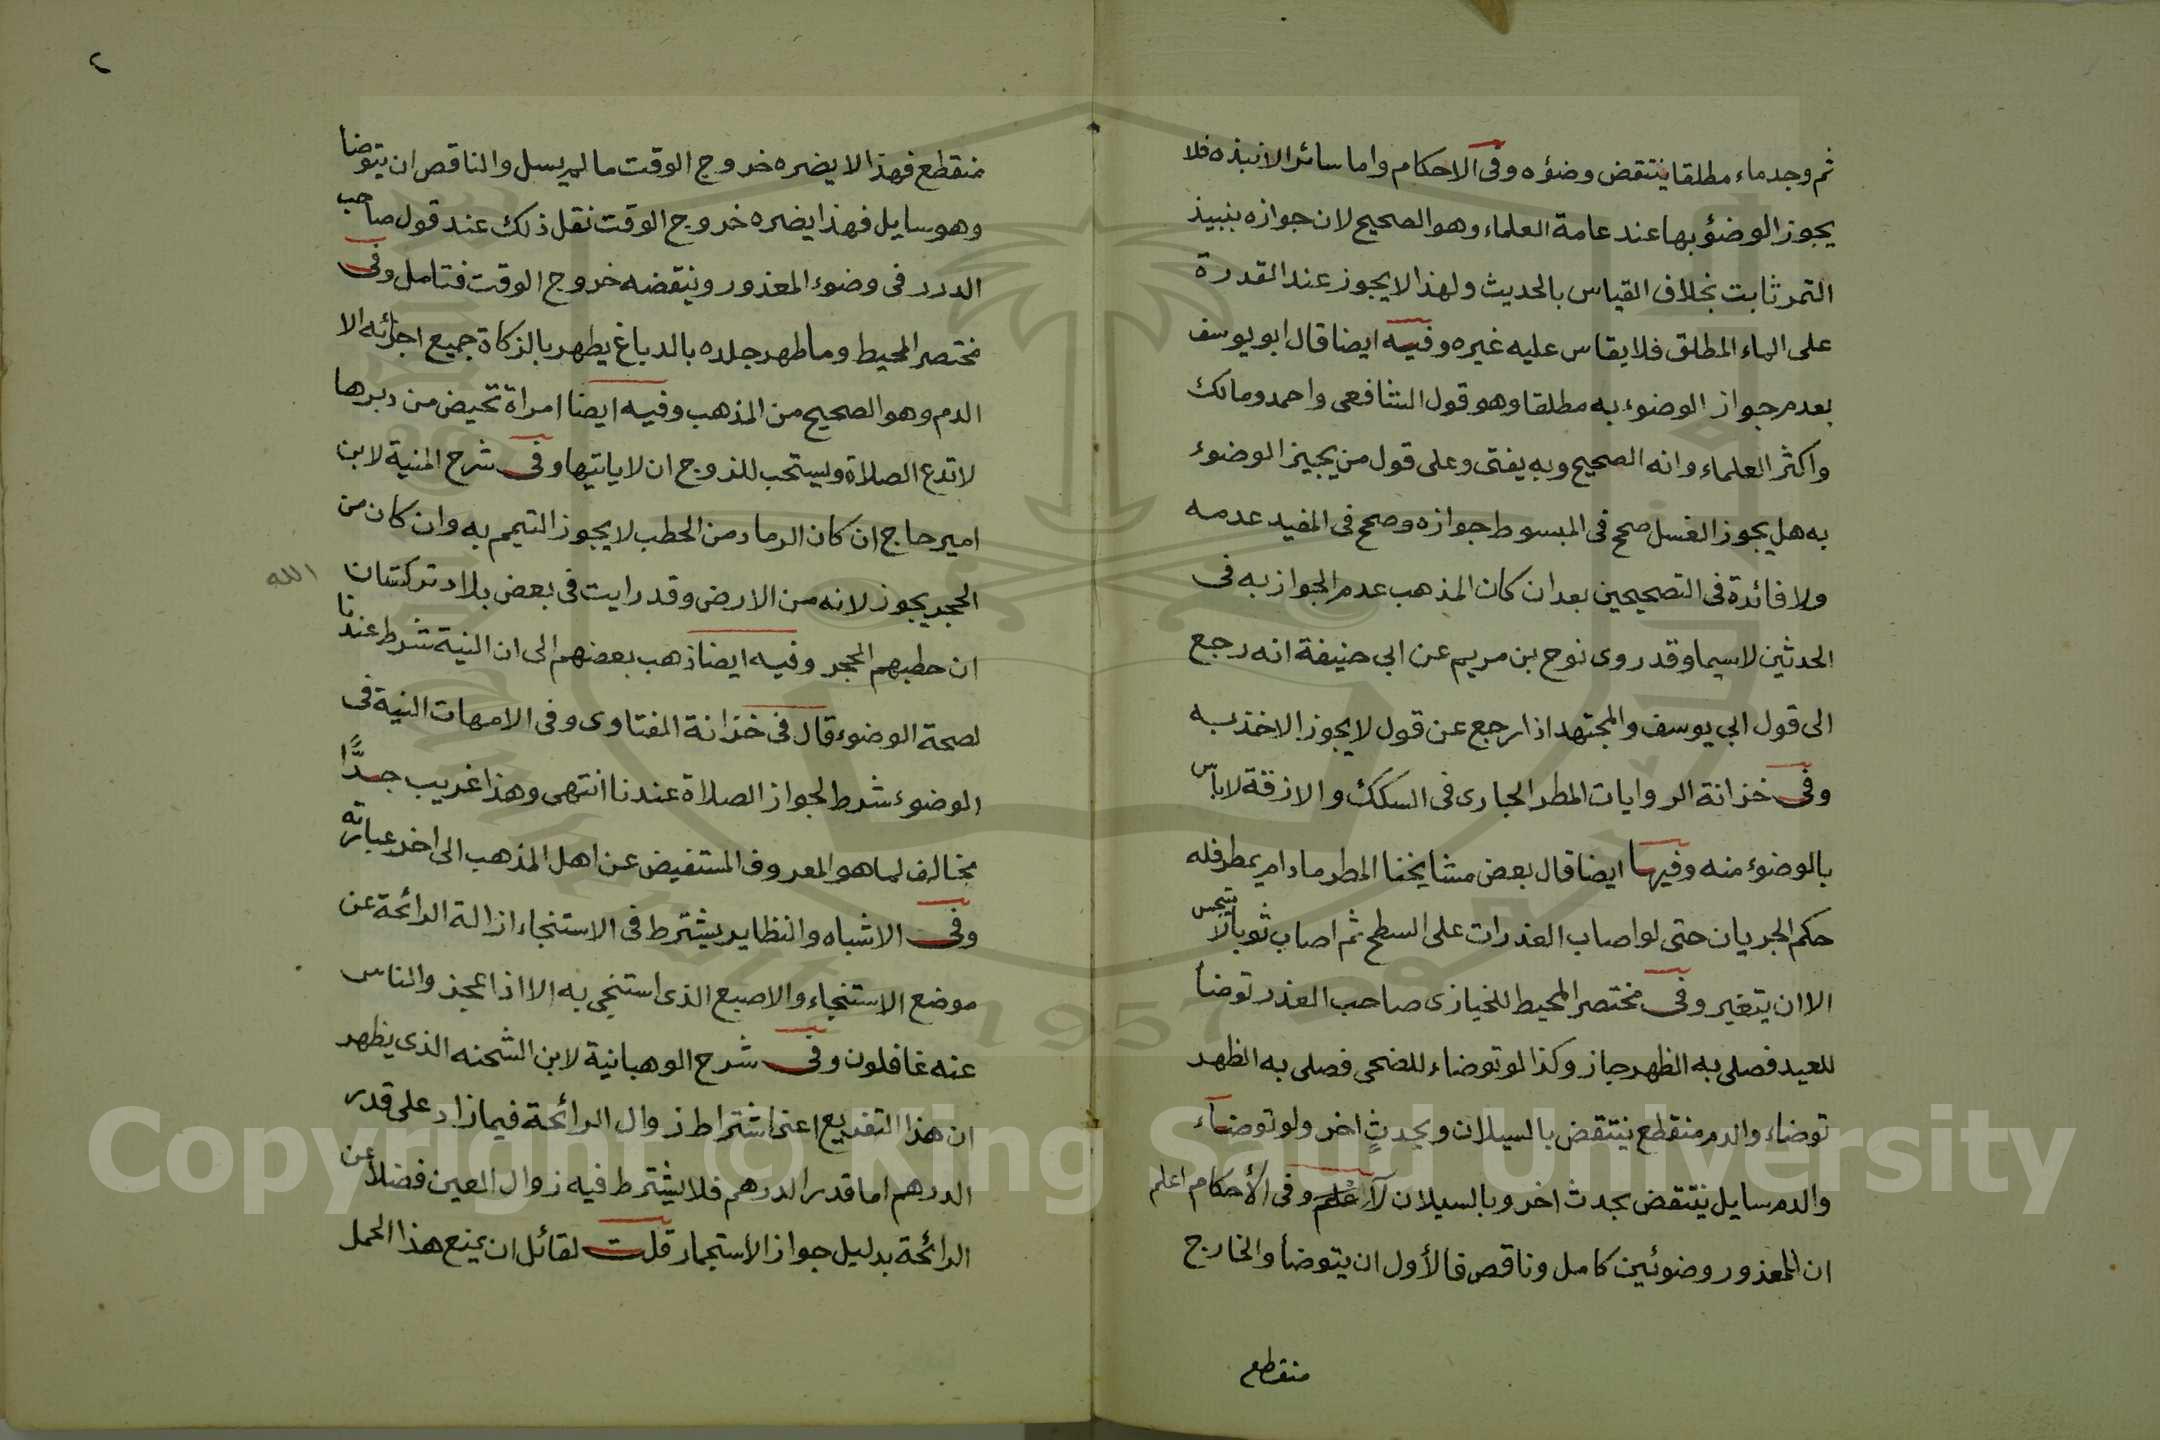 ثم وجد ماء مطلقا ينتقض وضؤه وفى الاحكام واما سائر الانبذه فلا
يجوز الوضؤ بها عند عامة العلماء وهو الصحيح لان جوازه بنبيذ
التمر ثابت بخلاف القياس بالحديث ولهذا لا يجوز عند القدرة
على الماء المطلق فلا يقاس عليه غيره وفيه ايضا قال ابو يوسف
بعدم جواز الوضوء به مطلقا وهو قول الشافعى واحمد ومالك
واكثر العلماء وانه الصحيح وبه يفتى وعلى قول من يجيز الوضوء
به هل يجوز الغسل صحح فى المبسوط جوازه وصحح فى المفيد عدمه
ولا فائدة فى التصحيحين بعد ان كان المذهب عدم الجواز به فى
الحدثين لاسيما وقد روى نوح بن مريم عن ابي حنيفة انه رجع
الى قول ابي يوسف والمجتهد اذا رجع عن قول لا يجوز الاخذ به
وفى خزانة الروايات المطر الجارى فى السكك والازقة لاباس
بالوضوء منه وفيها ايضا قال بعض مشايخنا المطر مادام يمطر فله
حكم الجريان حتى لو اصاب العذرات على السطح ثم اصاب ثوبا لا يتنجس
الا ان يتغير وفى مختصر المحيط للخبازى صاحب العذر توضأ
للعيد فصلى به الظهر جاز وكذا لو توضاء للضحى فصلى به الظهر
توضاء والدم منقطع ينتقض بالسيلان وبحدثٍ اخر ولو توضاء
والدم سايل ينتقض بحدث اخر وبالسيلان لا علم وفى الأحكام اعلم
ان للمعذور وضوئين كامل وناقص فالأول ان يتوضأ والخارج
منقطع
٢
منقطع فهذا لا يضره خروج الوقت مالم يسل والناقص ان يتوضا
وهو سايل فهذا يضره خروج الوقت نقل ذلك عند قول صاحب
الدرر فى وضوء المعذور وينقضه خروج الوقت فتامل وفى
مختصر المحيط وما طهر جلده بالدباغ يطهر بالزكاة جميع اجزائه الا
الدم وهو الصحيح من المذهب وفيه ايضا امراة تحيض من دبرها
لا تدع الصلاة ويستحب للزوج ان لا ياتيها وفى شرح المنية لابن
امير حاج ان كان الرماد من الحطب لا يجوز التيمم به وان كان من
الحجر يجوز لانه من الارض وقد رايت فى بعض بلاد تركستان
الله
ان حطبهم الحجر وفيه ايضا ذهب بعضهم الى ان النية شرط عندنا
لصحة الوضوء قال فى خزانة الفتاوى وفى الامهات النية فى
الوضوء شرط لجواز الصلاة عندنا انتهى وهذا غريب جدًّا
مخالف لما هو المعروف المستفيض عن اهل المذهب الى اخر عبارته
وفى الاشباه والنظاير يشترط فى الاستنجاء ازالة الرائحة عن
موضع الاستنجاء والاصبع الذى استنجى به الا اذا عجز والناس
عنه غافلون وفى شرح الوهبانية لابن الشحنه الذى يظهر
ان هذا التفريع اعنى اشتراط زوال الرائحة فيما زاد على قدر
الدرهم اما قدر الدرهم فلا يشترط فيه زوال العين فضلا عن
الرائحة بدليل جواز الأستجمار قلت لقائل ان يمنع هذا الحمل
Copyright © King Saud University
1957